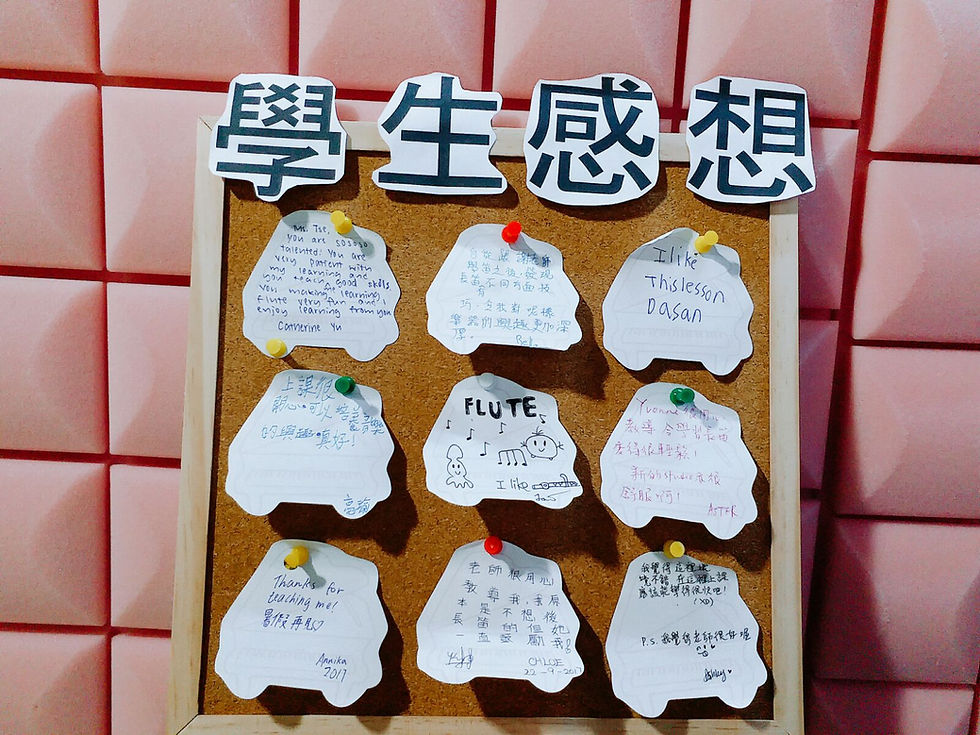 學生感想
Ms. Tse,
you are sososo
talented! You are
very patient with
my learning and
you teach good skills
you making learning
flute very fun and
enjoy learning from you
Catherine Yu
學笛之後,發現
長笛不同方面技
巧
學習的興趣更加深
I like
This lesson
Dasan
上課很
開心,可以培養音樂
的興趣,真好!
FLUTE
I like
Yvonne
教導 令學習
覺得很輕鬆!
新的studio亦很
舒服啊!
ASTER
Thanks for
teaching me!
暑假再見
Annika
2017
老師很用心
教導我,我原
本是不想後
長笛的但她
一直鼓勵我!
CHLOE
22-9-2017
我覺得這裡環
境不錯 在這裡上課
應該能學得很快吧!
(XD)
P.S. 我覺得老師很好喔
Ashley